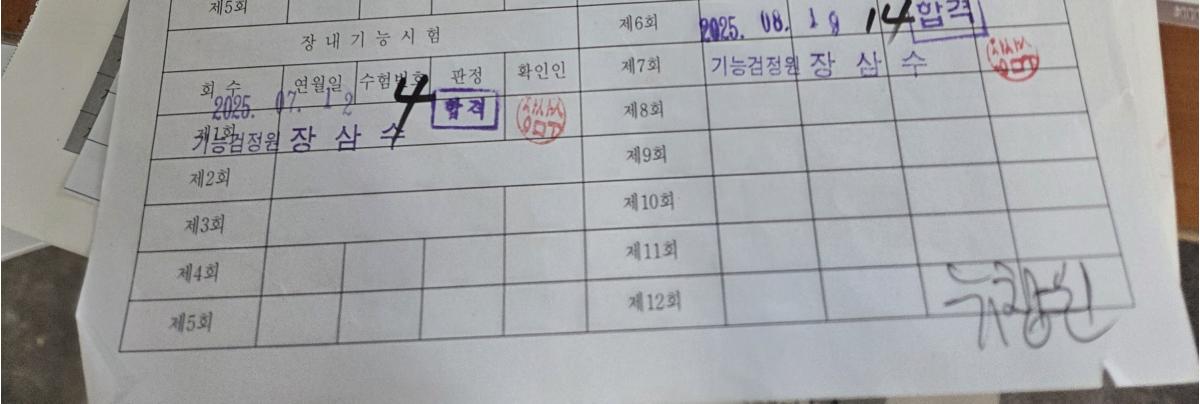 제5회
장내기능시험
회 수 연월일 수험번호 판정 확인인
2025. 07. 12 4 합격
제1회
기능검정원 장 삼 수
제2회
제3회
제4회
제5회
제6회 2025. 08. 18 14 합격
제7회 기능검정원 장 삼 수
제8회
제9회
제10회
제11회
제12회